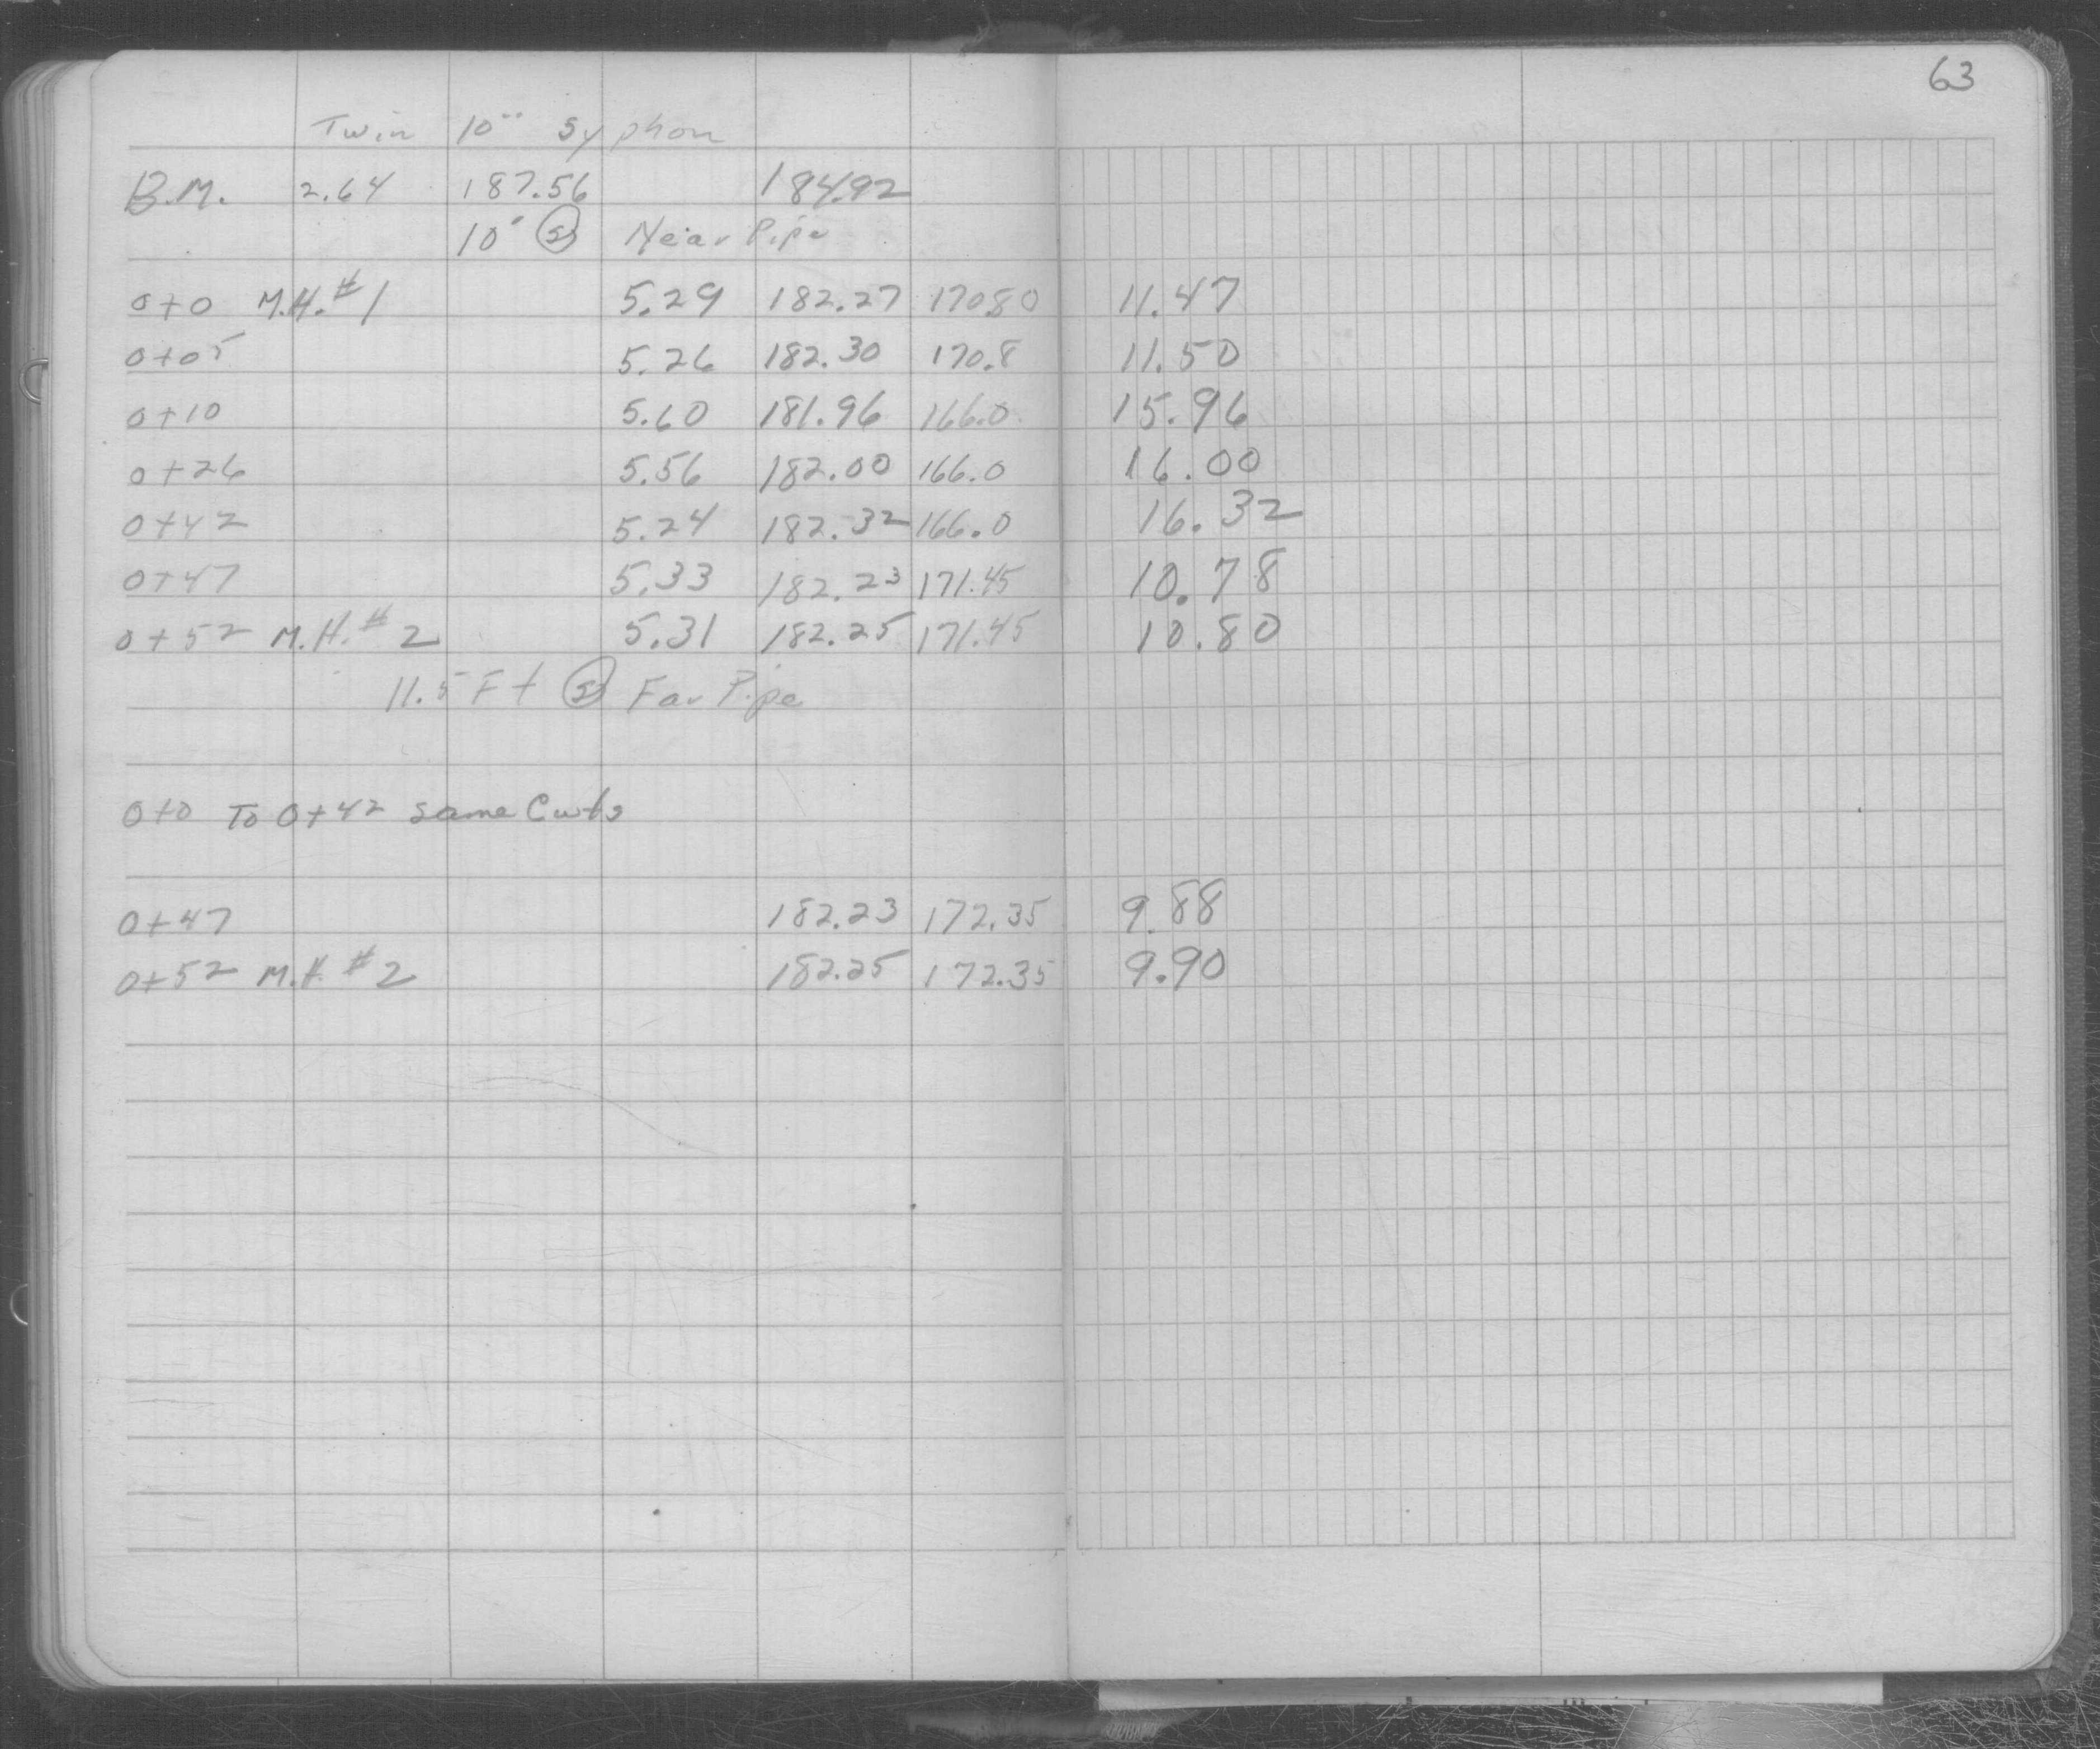 63
Twin 10" Syphon
B.M. 2.64 187.56 184.92
10' Ⓢ Near Pipe
0+0 M.H.#1 5.29 182.27 170.80 11.47
0+05 5.26 182.30 170.8 11.50
0+10 5.60 181.96 166.0 15.96
0+26 5.56 182.00 166.0 16.00
0+42 5.24 182.32 166.0 16.32
0+47 5.33 182.23 171.45 10.78
0+52 M.H.#2 5.31 182.25 171.45 10.80
11.5 Ft Ⓢ Far Pipe
0+0 To 0+42 same Cuts
0+47 182.23 172.35 9.88
0+52 M.H.#2 182.25 172.35 9.90